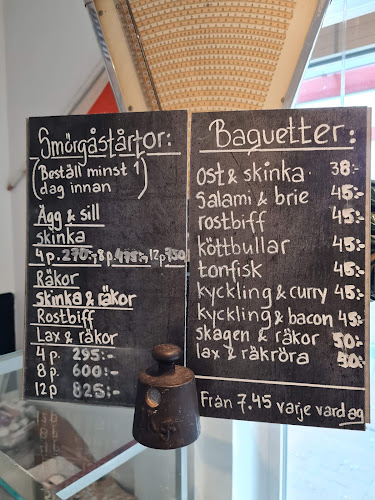 Smörgåstårtor:
(Beställ minst 1
dag innan)
Ägg & sill
skinka
4 p. 270:- 8 p. 495:- 12 p. 750
Räkor
skinka & räkor
Rostbiff
Lax & räkor
4 p. 295:-
8 p. 600:-
12 p 825:-
Baguetter:
ost & skinka 38:-
Salami & brie 45:-
rostbiff 45:-
köttbullar 45:-
tonfisk 45:-
kyckling & curry 45:-
kyckling & bacon 45:-
skagen & räkor 50:-
lax & räkröra 50:-
Från 7.45 varje vardag